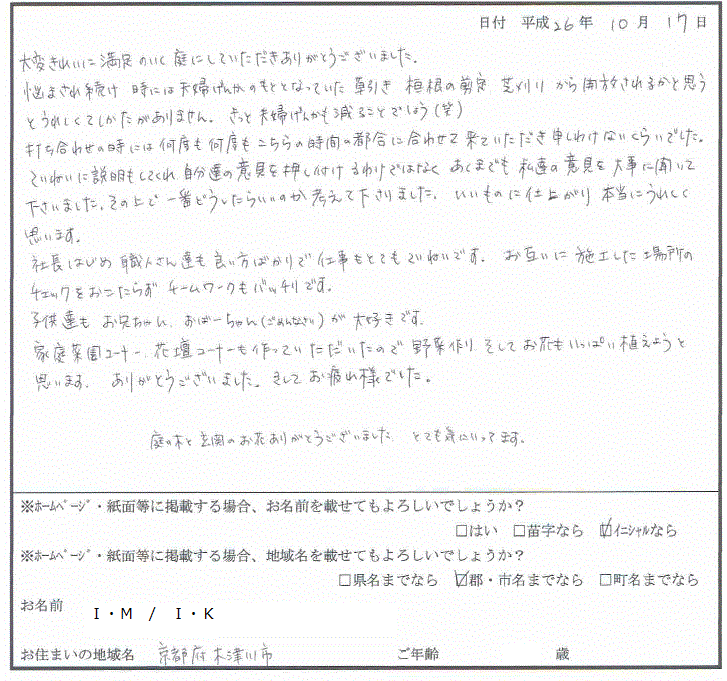 日付 平成26年 10月 17日
大変きれいに満足のいく庭にしていただきありがとうございました。
悩まされ続け 時には夫婦げんかのもととなっていた 草引き 垣根の剪定 芝刈り から開放されるかと思う
とうれしくてしかたがありません。きっと夫婦げんかも減ることでしょう(笑)
打ち合わせの時には何度も何度もこちらの時間の都合に合わせて来ていただき申しわけないくらいでした。
ていねいに説明もしてくれ 自分達の意見を押し付けるわけではなく あくまでも 私達の意見を大事に聞いて
下さいました。その上で一番どうしたらいいのか考えて下さりました。いいものに仕上がり 本当にうれしく
思います。
社長はじめ 職人さん達も良い方ばかりで仕事もとてもていねいです。お互いに施工した場所の
チェックをおこたらず チームワークもバッチリです。
子供達も お兄ちゃん、おばーちゃん(ごめんなさい)が大好きです。
家庭菜園コーナー、花壇コーナーも作っていただいたので 野菜作り そしてお花もいっぱい植えようと
思います。ありがとうございました。そしてお疲れ様でした。
庭の木と玄関のお花ありがとうございました。とても気にいってます。
※ﾎｰﾑﾍﾟｰｼﾞ・紙面等に掲載する場合、お名前を載せてもよろしいでしょうか？
□はい □苗字なら ☑ｲﾆｼｬﾙなら
※ﾎｰﾑﾍﾟｰｼﾞ・紙面等に掲載する場合、地域名を載せてもよろしいでしょうか？
□県名までなら ☑郡・市名までなら □町名までなら
お名前 I・M / I・K
お住まいの地域名 京都府木津川市 ご年齢 歳